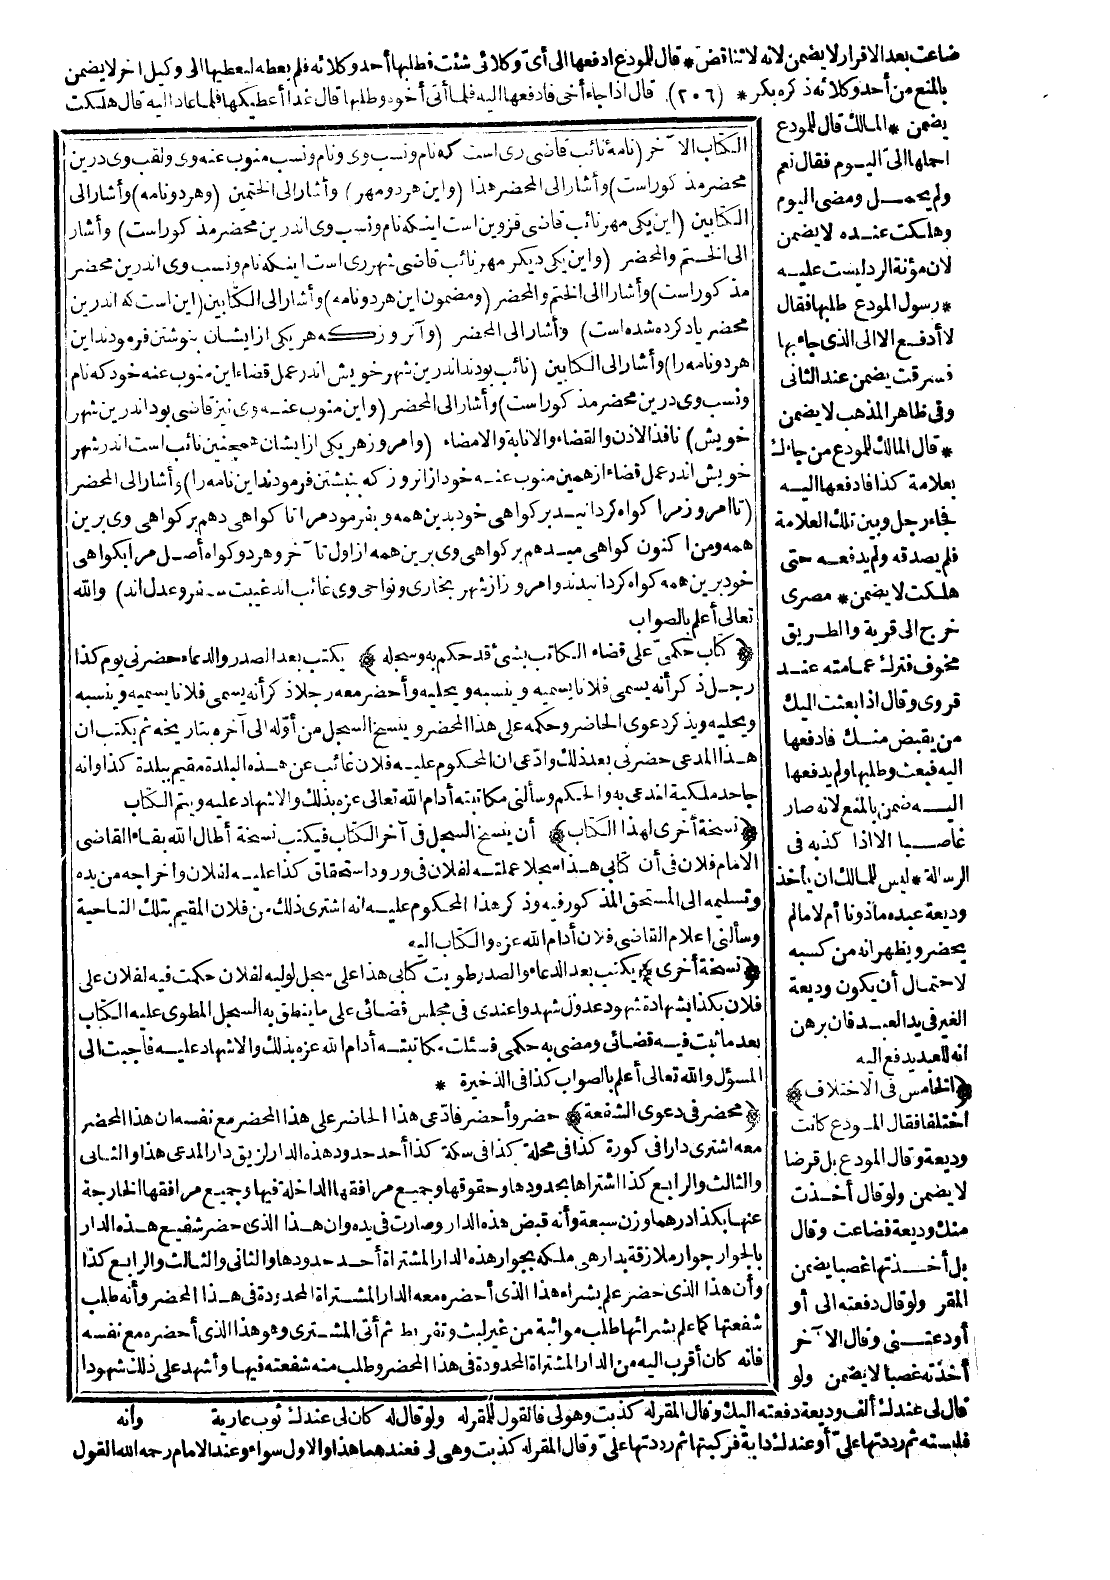 ضاعت بعد الاقرار لا يضمن لانه لا تناقض * قال للمودع ادفعها الى أىّ وكلائى شئت فطلبها أحد وكلائه فلم يعطه ليعطيها الى وكيل اخر لا يضمن
بالمنع من أحد وكلائه ذكره بكر * (٢٠٦) قال اذا جاء أخى فادفعها اليه فلما أتى أخوه وطلبها قال غدا أعطيكها فلما عاد اليه قال هلكت
يضمن * المالك قال للمودع
احملها الىّ اليوم فقال نعم
ولم يحمل ومضى اليوم
وهلكت عنده لا يضمن
لان مؤنة الرد ليست عليه
* رسول المودع طلبها فقال
لا أدفع الا الى الذى جاء بها
فسرقت يضمن عند الثانى
وفى ظاهر المذهب لا يضمن
* قال المالك للمودع من جاءك
بعلامة كذا فادفعها اليه
فجاء رجل وبين تلك العلامة
فلم يصدقه ولم يدفعه حتى
هلكت لا يضمن * مصرى
خرج الى قرية والطريق
مخوف فترك عمامته عند
قروى وقال اذا بعثت اليك
من يقبض منك فادفعها
اليه فبعث وطلبها ولم يدفعها
اليه ضمن بالمنع لانه صار
غاصبا الا اذا كذبه فى
الرسالة * ليس للمالك ان يأخذ
وديعة عبده مأذونا أم لا ما لم
يحضر ويظهر انه من كسبه
لاحتمال أن يكون وديعة
الغير فى يد العبد فان برهن
انه للعبد يدفع اليه
﴿الخامس فى الاختلاف﴾
اختلفا فقال المودع كانت
وديعة وقال المودع بل قرضا
لا يضمن ولو قال أخذت
منك وديعة فضاعت وقال
بل أخذتها غصبا يضمن
المقر ولو قال دفعته الى أو
أودعتنى وقال الآخر
أخذته غصبا لا يضمن ولو
الكتاب الآخر (نامۀ نائب قاضى رى است كه نام ونسب وى ونام ونسب منوب عنه وى ولقب وى درين
محضر مذكور است) وأشار الى المحضر هذا (واين هر دو مهر) وأشار الى الختمين (وهر دو نامه) وأشار الى
الكتابين (اين يكى مهر نائب قاضى قزوين است اينكه نام ونسب وى اندرين محضر مذكور است) وأشار
الى الختم والمحضر (واين يكى ديكر مهر نائب قاضى شهر رى است اينكه نام ونسب وى اندرين محضر
مذكور است) وأشار الى الختم والمحضر (ومضمون اين هر دو نامه) وأشار الى الكتابين (اين است كه اندرين
محضر ياد كرده شده است) وأشار الى المحضر (وآن روز كه هر يكى از ايشان بنوشتن فرمودند اين
هر دو نامه را) وأشار الى الكتابين (نائب بودند اندرين شهر خويش اندر عمل قضاء اين منوب عنه خود كه نام
ونسب وى درين محضر مذكور است) وأشار الى المحضر (واين منوب عنه وى نيز قاضى بود اندرين شهر
خويش) نافذ الاذن والقضاء والانابة والامضاء (وامروز هر يكى از ايشان همچنين نائب است اندر شهر
خويش اندر عمل قضاء از همين منوب عنه خود از انروز كه بنبشتن فرمودند اين نامه را) وأشار الى المحضر
(تا امروز مرا كواه كردانيد بر كواهى خود بدين همه وبفرمود مرا تا كواهى دهم بر كواهى وى برين
همه ومن اكنون كواهى ميدهم بر كواهى وى برين همه از اول تا آخر وهر دو كواه أصل مرا بكواهى
خود برين همه كواه كردانيدند وامروز از شهر بخارى ونواحى وى غائب اند غيبت سفر وعدل اند) والله
تعالى أعلم بالصواب
﴿كتاب حكمىّ على قضاء الكاتب بشئ قد حكم به وسجله﴾ يكتب بعد الصدر والدعاء حضرنى يوم كذا
رجل ذكر أنه يسمى فلانا يسميه وينسبه ويحليه وأحضر معه رجلا ذكر أنه يسمى فلانا يسميه وينسبه
ويحليه ويذكر دعوى الحاضر وحكمه على هذا المحضر وينسخ السجل من أوله الى آخره بتاريخه ثم يكتب ان
هذا المدعى حضرنى بعد ذلك وادّعى ان المحكوم عليه فلان غائب عن هذه البلدة مقيم ببلدة كذا وانه
جاحد ملكية المدعى به والحكم وسألنى مكاتبته أدام الله تعالى عزه بذلك والاشهاد عليه ويتم الكتاب
﴿نسخة أخرى لهذا الكتاب﴾ أن ينسخ السجل فى آخر الكتاب فيكتب نسخة أطال الله بقاء القاضى
الامام فلان فى أن كتابى هذا سجلا عملته لفلان فى ورود استحقاق كذا عليه لفلان واخراجه من يده
وتسليمه الى المستحق المذكور فيه وذكر هذا المحكوم عليه انه اشترى ذلك من فلان المقيم بتلك الناحية
وسألنى اعلام القاضى فلان أدام الله عزه والكتاب اليه
﴿نسخة أخرى﴾ يكتب بعد الدعاء والصدر طويت كتابى هذا على سجل لوليه لفلان حكمت فيه لفلان على
فلان بكذا بشهادة شهود عدول شهدوا عندى فى مجلس قضائى على ما ينطق به السجل المطوى عليه الكتاب
بعد ما ثبت فيه قضائى ومضى به حكمى فسئلت مكاتبته أدام الله عزه بذلك والاشهاد عليه فأجبت الى
المسؤل والله تعالى أعلم بالصواب كذا فى الذخيرة *
﴿محضر فى دعوى الشفعة﴾ حضر وأحضر فادّعى هذا الحاضر على هذا المحضر مع نفسه ان هذا المحضر
معه اشترى دارا فى كورة كذا فى محلة كذا فى سكة كذا أحد حدود هذه الدار لزيق دار المدعى هذا والثانى
والثالث والرابع كذا اشتراها بحدودها وحقوقها وجميع مرافقها الداخلة فيها وجميع مرافقها الخارجة
عنها بكذا درهما وزن سبعة وأنه قبض هذه الدار وصارت فى يده وان هذا الذى حضر شفيع هذه الدار
بالجوار جوار ملازقة بدار هى ملكه بجوار هذه الدار المشتراة أحد حدودها والثانى والثالث والرابع كذا
وأن هذا الذى حضر علم بشراء هذا الذى أحضره معه الدار المشتراة المحدودة فى هذا المحضر وأنه طلب
شفعتها كما علم بشرائها طلب مواثبة من غير لبث وتفريط ثم أتى المشترى وهو هذا الذى أحضره مع نفسه
فانه كان أقرب اليه من الدار المشتراة المحدودة فى هذا المحضر وطلب منه شفعته فيها وأشهد على ذلك شهودا
قال لى عندك ألف وديعة دفعته اليك وقال المقر له كذبت وهو لى فالقول للمقر له ولو قال له كان لى عندك ثوب عارية وأنه
فلبسته ثم رددتها علىّ أو عندك دابة فركبتها ثم رددتها علىّ وقال المقر له كذبت وهى لى فعندهما هذا والاول سواء وعند الامام رحمه الله القول